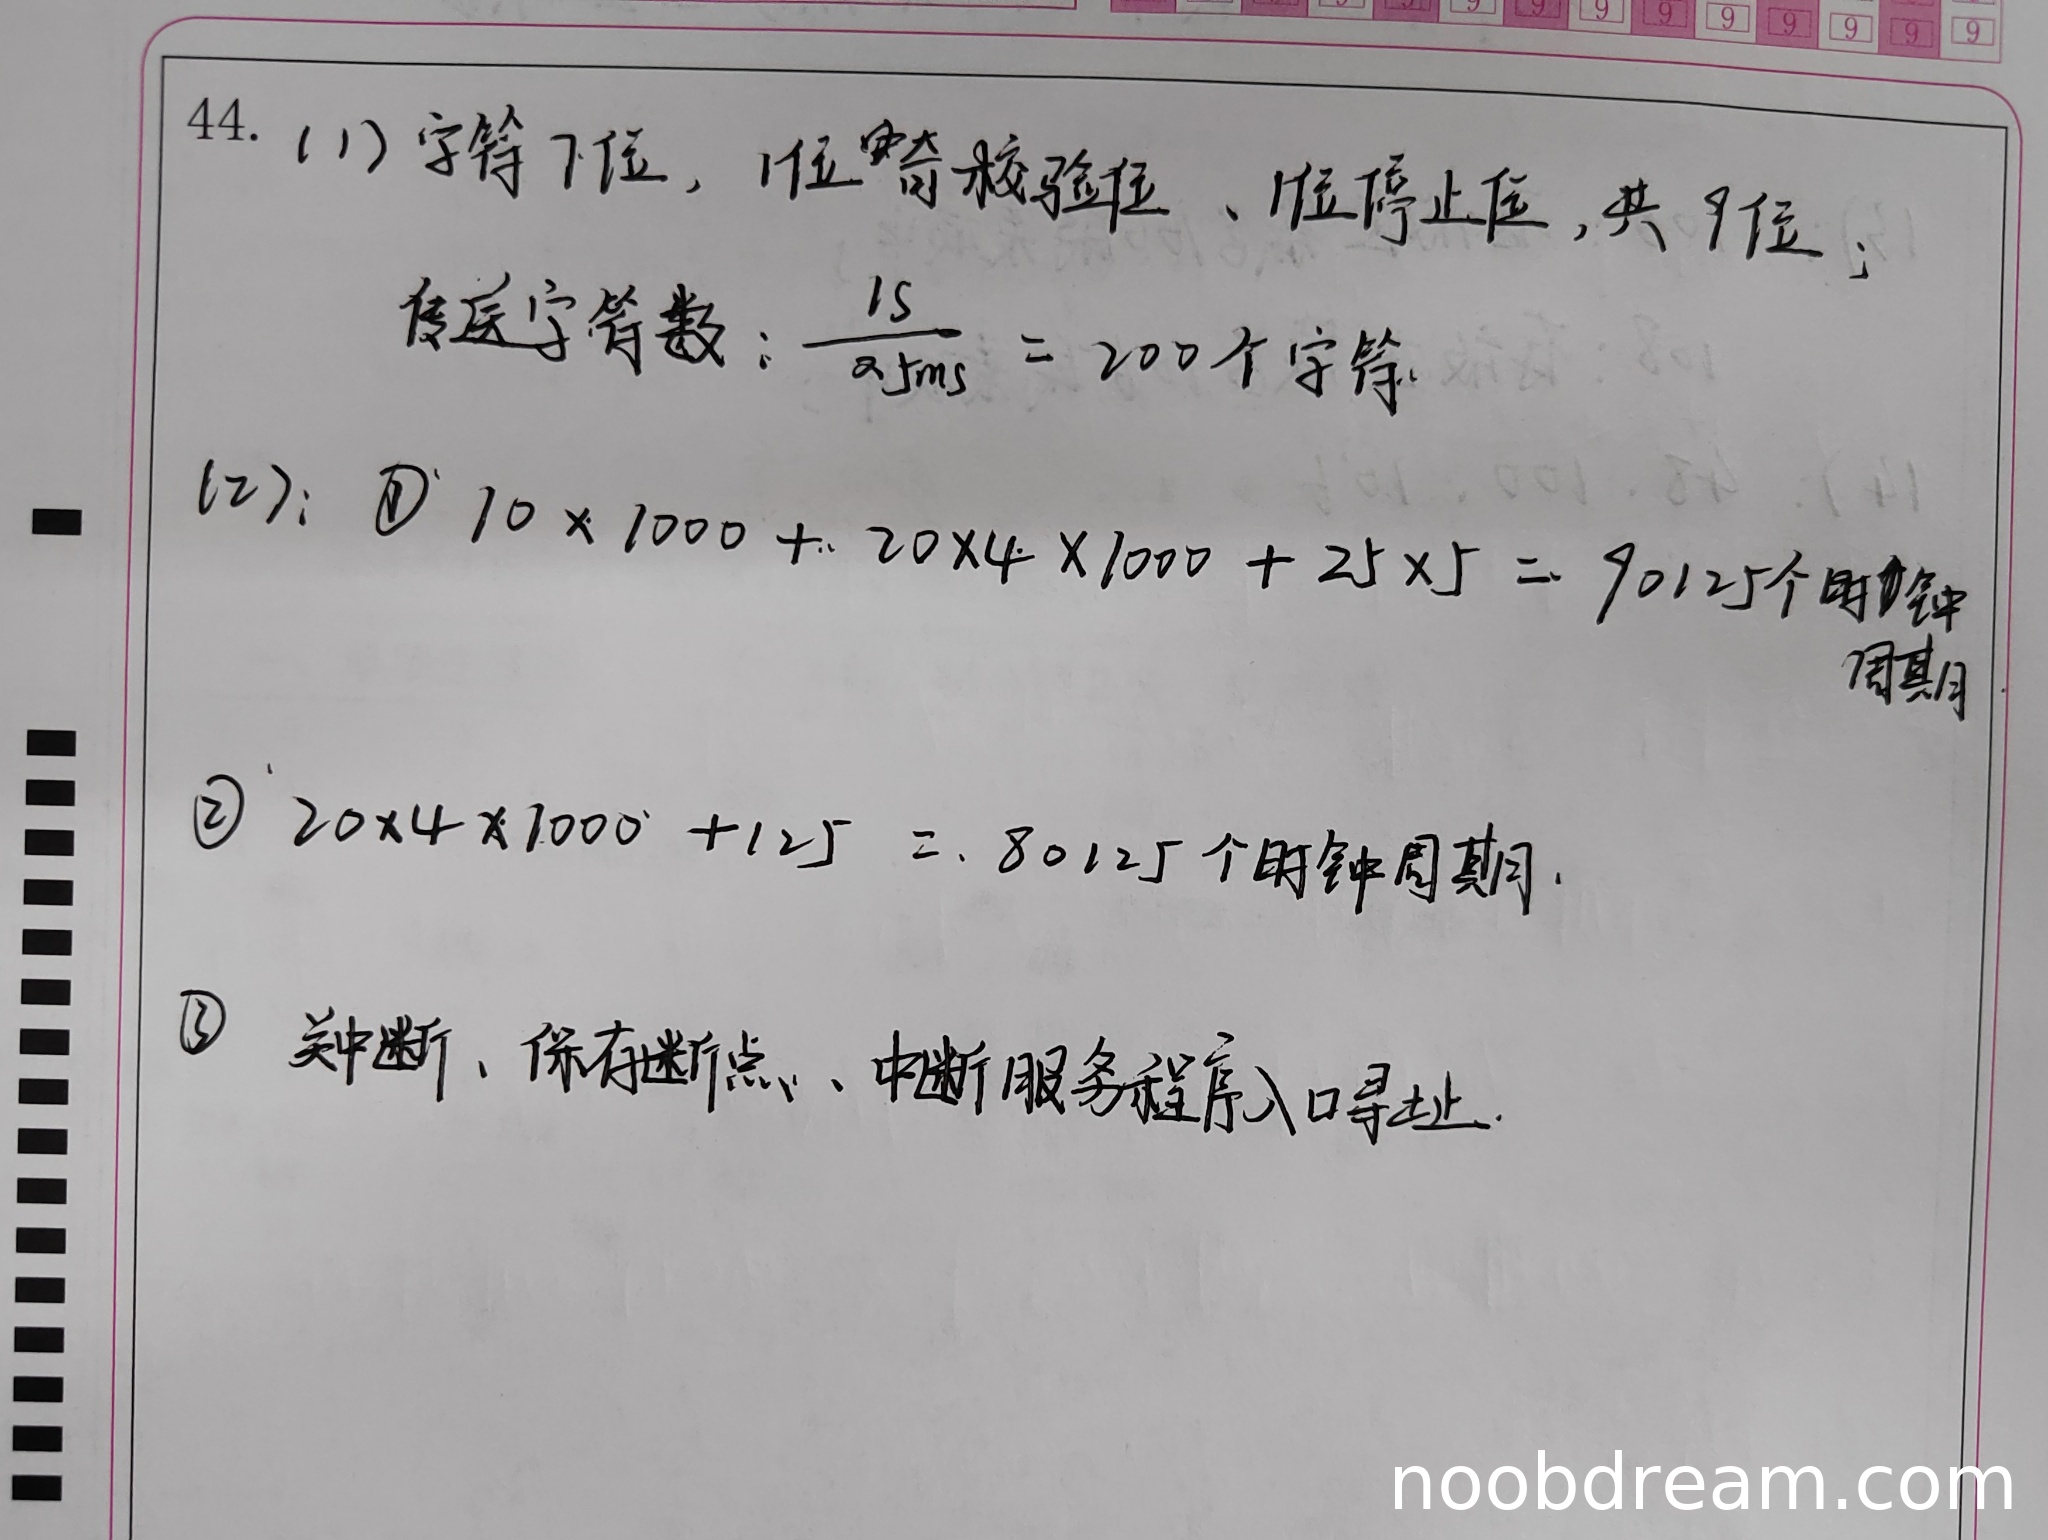 9 9 9 9 9 9 9 9 9 9 9 9
44. (1) 字符7位, 1位奇校验位、1位停止位, 共9位;
传送字符数: 1s / 0.5ms = 200个字符.
(2): ① 10 × 1000 + 20×4 × 1000 + 25 × 5 = 90125个时钟
周期
② 20×4×1000 + 125 = 80125个时钟周期.
③ 关中断、保存断点、中断服务程序入口寻址.
noobdream.com